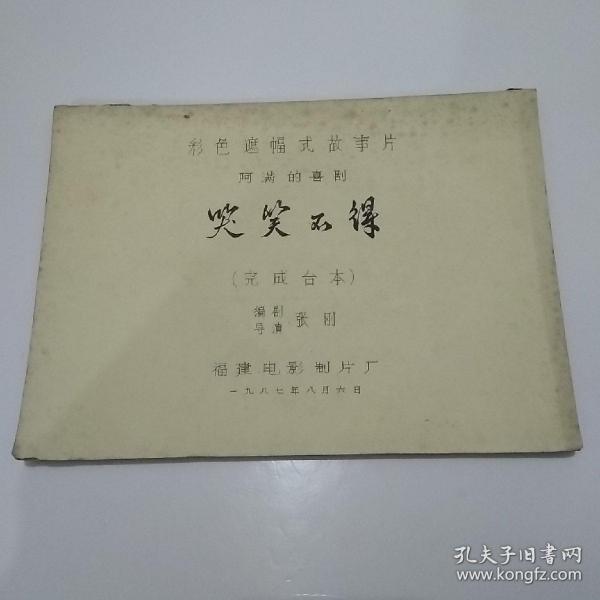 彩色遮幅式故事片
阿满的喜剧
哭笑不得
(完成台本)
编剧
导演 张刚
福建电影制片厂
一九八七年八月六日
孔夫子旧書网
www.kongfz.com